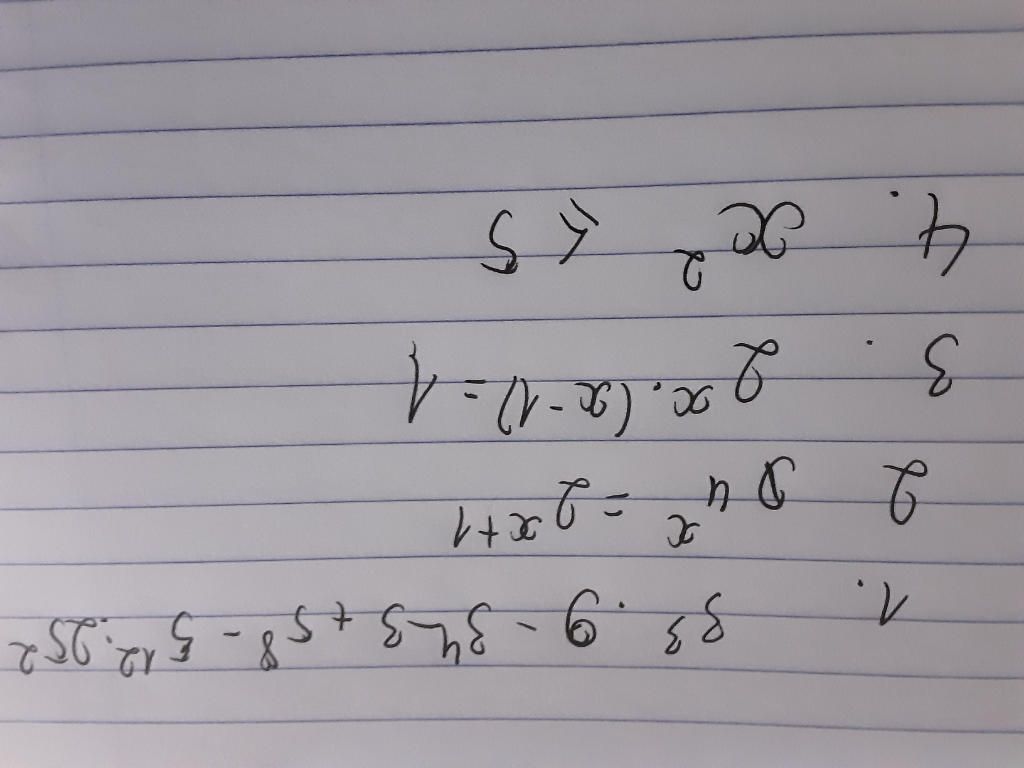 1. 3³ . 9 - 3⁴.3 + 5⁸ - 5¹² : 25²
2 2 4ˣ = 2ˣ⁺¹
3. 2 x.(x-1) = 1
4. x² < 5